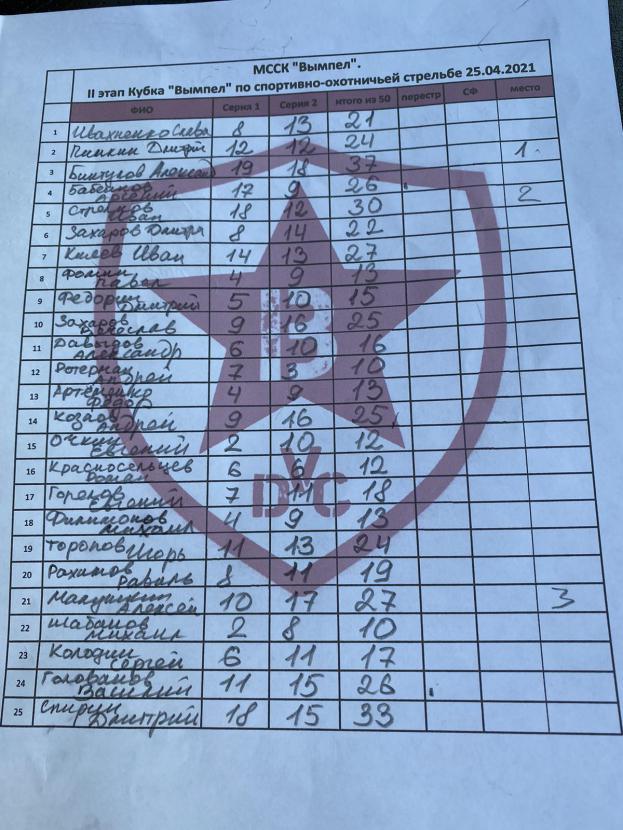 МССК "Вымпел".
II этап Кубка "Вымпел" по спортивно-охотничьей стрельбе 25.04.2021
ФИО Серия 1 Серия 2 итого из 50 перестр СФ место
1 Ивахненко Слава 8 13 21
2 Пипкин Дмитрий 12 12 24 1
3 Бинтугов Александр 19 18 37
4 Бабейнов Арсений 17 9 26 2
5 Стрелков Иван 18 12 30
6 Захаров Дмитрий 8 14 22
7 Килев Иван 14 13 27
8 Фомин Павел 4 9 13
9 Федорин Дмитрий 5 10 15
10 Захаров Вячеслав 9 16 25
11 Давыдов Александр 6 10 16
12 Ротерман Андрей 7 3 10
13 Артеменко Федор 4 9 13
14 Козлов Андрей 9 16 25
15 Очкин Евгений 2 10 12
16 Красносельцев Роман 6 6 12
17 Горелов Евгений 7 11 18
18 Филимонов Михаил 4 9 13
19 Торопов Игорь 11 13 24
20 Рахимов Равиль 8 11 19
21 Малушкин Алексей 10 17 27 3
22 Шабанов Михаил 2 8 10
23 Колодин Сергей 6 11 17
24 Голованов Василий 11 15 26
25 Спирин Дмитрий 18 15 33
В
DVC